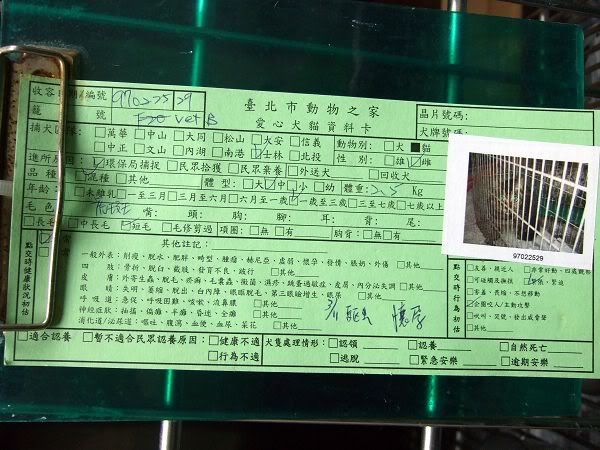 收容日期/編號 97022529
臺北市動物之家
愛心犬貓資料卡
晶片號碼:
犬牌號碼:
籠 號 F20 vet B
捕犬區隊: □萬華 □中山 □大同 □松山 □大安 □信義
□中正 □文山 □內湖 □南港 ☑士林 □北投
動物別: □犬 ■貓
性 別: □雄 ☑雌
進所原因: ☑環保局捕捉 □民眾拾獲 □民眾棄養 □外送犬 □回收犬
品種: ☑混種 □其他 體 型: □大 ☑中 □小 □幼 體重: 2.5 Kg
年齡: □未離乳 □一至三月 □三月至六月 □六月至一歲 ☑一歲至三歲 □三至七歲 □七歲以上
毛色: 嘴: 頭: 胸: 腳: 耳: 背: 尾:
□長毛 □中長毛 ☑短毛 □毛修剪過 項圈: □無 □有 胸背: □無 □有
點交時健康狀況初估
其他註記:
一般外表: 削瘦、脫水、肥胖、畸型、腫瘤、赫尼亞、虛弱、懷孕、發情、脹奶、外傷 □其他
四 肢: 骨折、脫臼、截肢、發育不良、跛行 □其他
皮 膚: 外寄生蟲、脫毛、疥癬、毛囊蟲、黴菌、濕疹、跳蚤過敏症、皮屑、內分泌失調 □其他
眼 睛: 失明、萎縮、脫出、白內障、眼瞼脫毛、第三眼瞼增生、眼屎 □其他
呼吸道: 急促、呼吸困難、咳嗽、流鼻膿 □其他
神經症狀: 抽搐、偏癱、半癱、昏迷、全癱 □其他
消化道/泌尿道: 嘔吐、腹瀉、血便、血尿、尿花 □其他
3/1
97022529
點交時行為初估
□友善、親近人 □非常好動、四處觀望
□可碰觸及撫摸
□害羞、畏縮、不想移動
☑企圖咬人/主動攻擊
□吠叫、哭號、發出威脅聲
□其他
□適合認養 □暫不適合民眾認養原因: □健康不適 □行為不適
犬隻處理情形: □認領 □認養 □自然死亡
□逃脫 □緊急安樂 □逾期安樂